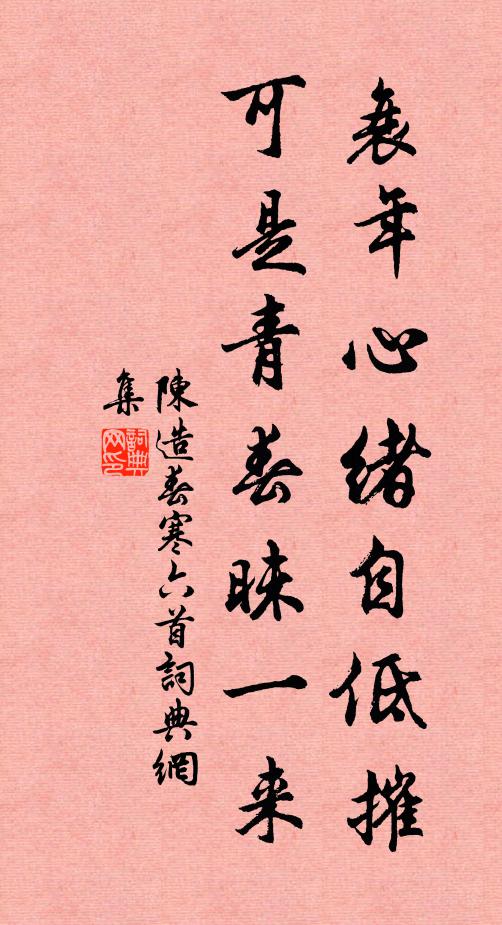 衰年心緒自低摧
可是青春昧一来
陳造春寒六首詞典網
集
詞典网印